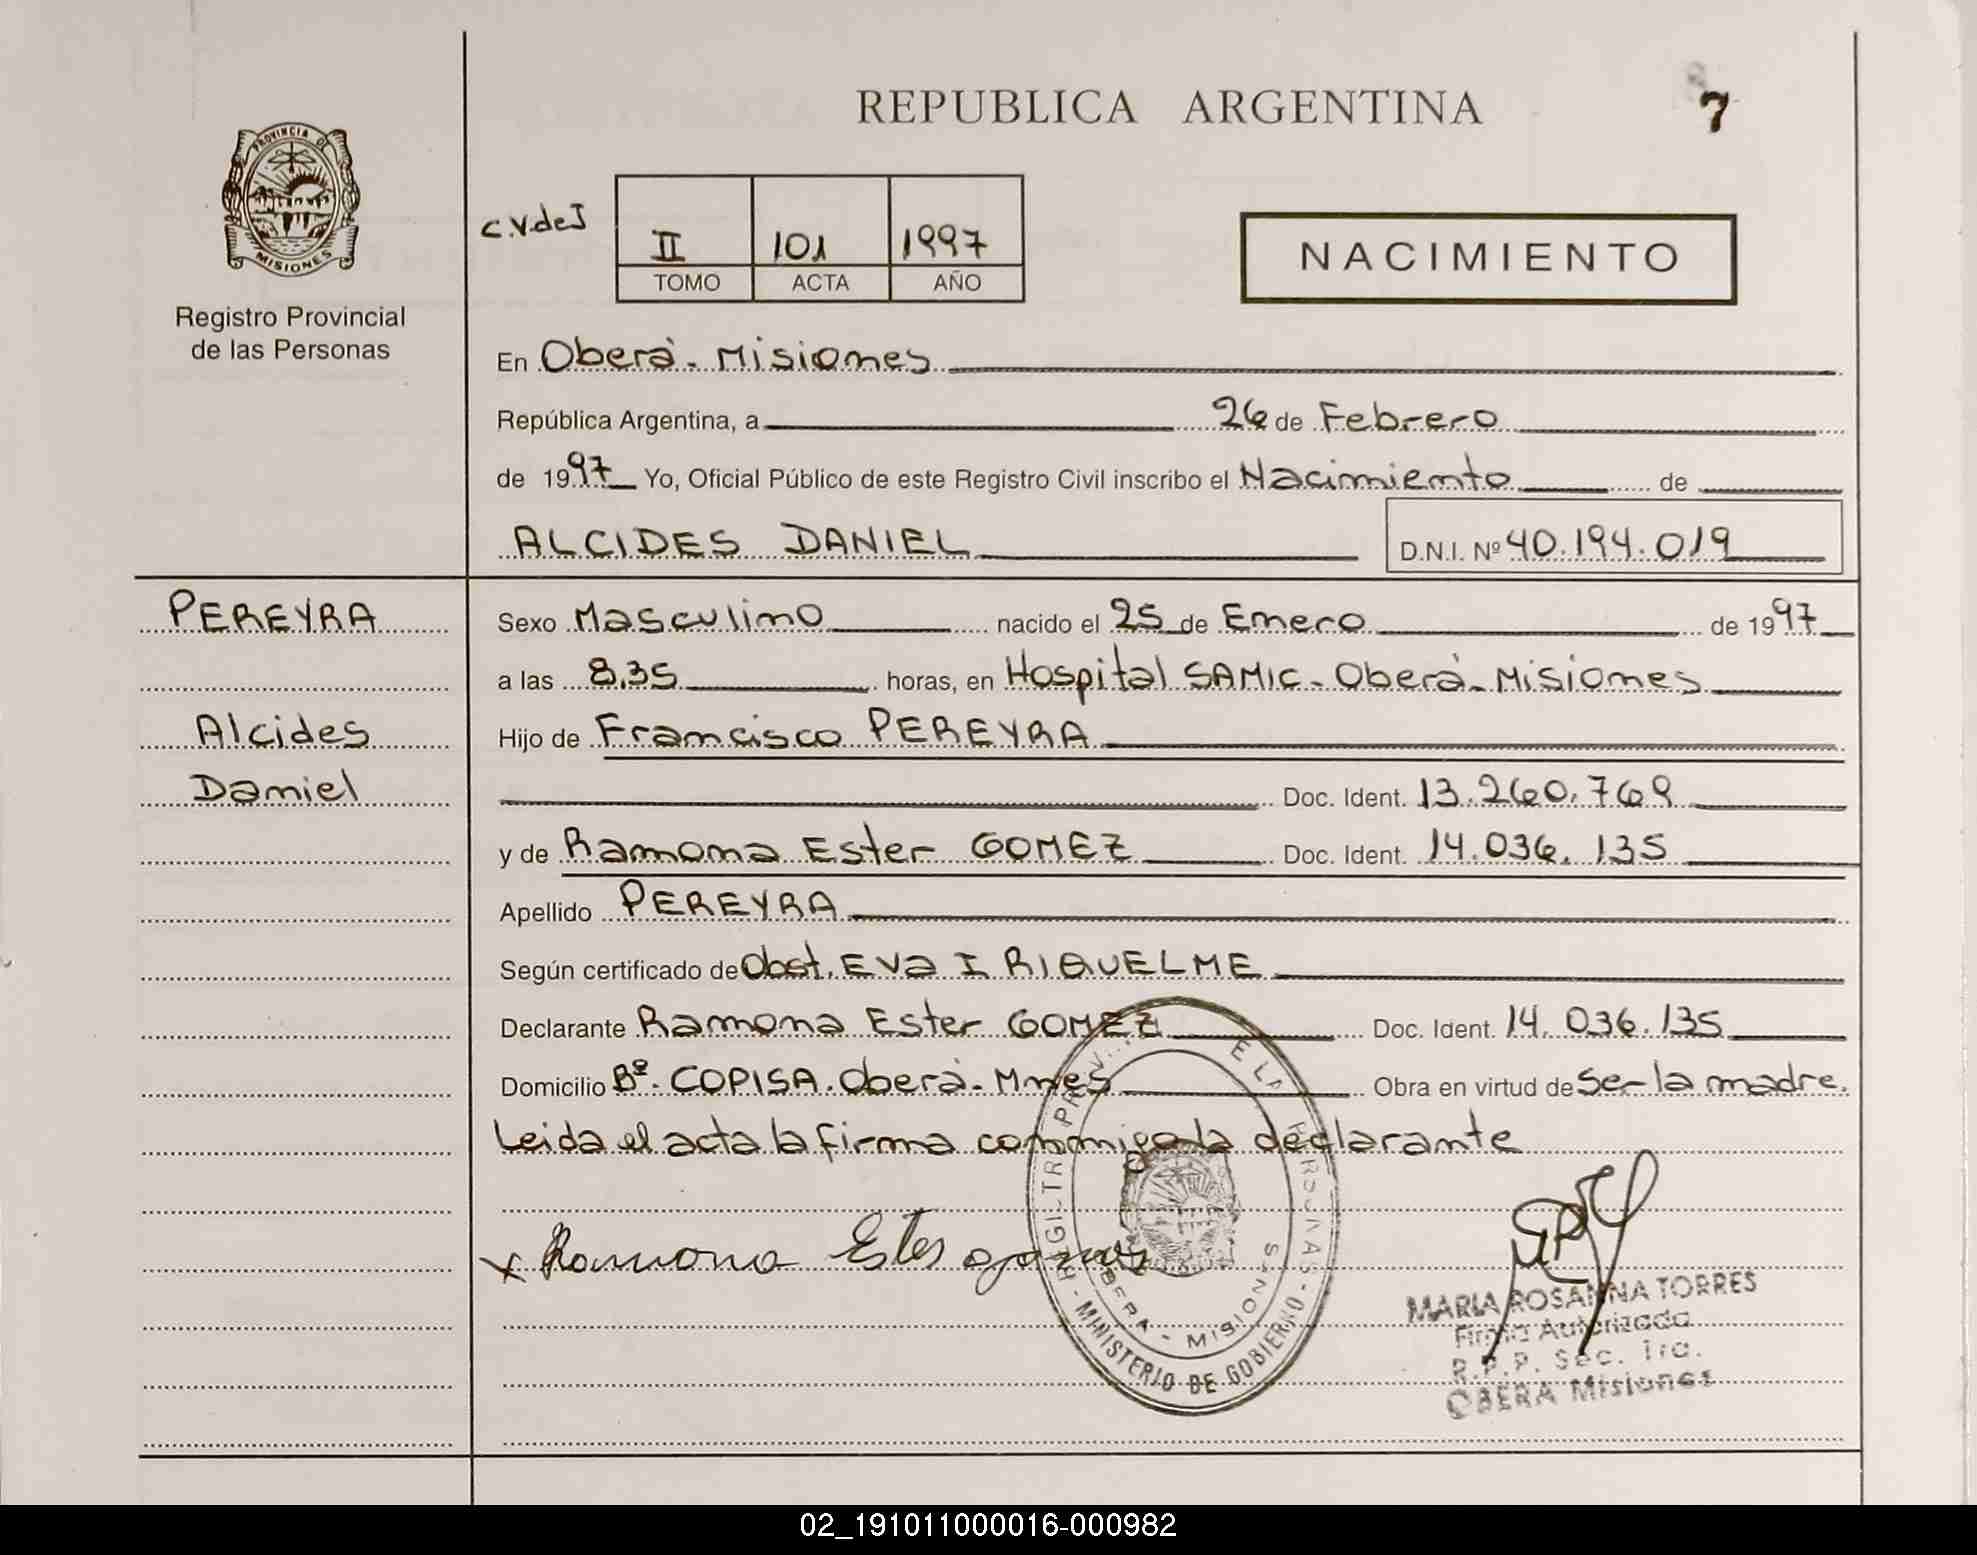 REPUBLICA ARGENTINA
7
PROVINCIA DE
MISIONES
Registro Provincial
de las Personas
C.V.deI
II 101 1997
TOMO ACTA AÑO
NACIMIENTO
En Oberá. Misiones
República Argentina, a 26 de Febrero
de 1997 Yo, Oficial Público de este Registro Civil inscribo el Nacimiento de
ALCIDES DANIEL D.N.I. Nº 40.194.019
PEREYRA Sexo Masculino nacido el 25 de Enero de 1997
a las 8,35 horas, en Hospital SAMIC. Oberá. Misiones
Alcides Hijo de Francisco PEREYRA
Daniel Doc. Ident. 13.260.769
y de Ramona Ester GOMEZ Doc. Ident. 14.036.135
Apellido PEREYRA
Según certificado de Obst. Eva I RIQUELME
Declarante Ramona Ester GOMEZ Doc. Ident. 14.036.135
Domicilio Bº. COPISA. Oberá. Mnes Obra en virtud de Ser la madre.
Leida el acta la firma conmigo la declarante
x Ramona Ester
MINISTERIO DE GOBIERNO
OBERA - MISIONES
MARIA ROSANNA TORRES
Firma Autorizada
R.P.P. Sec. 1ra.
OBERA Misiones
02_191011000016-000982